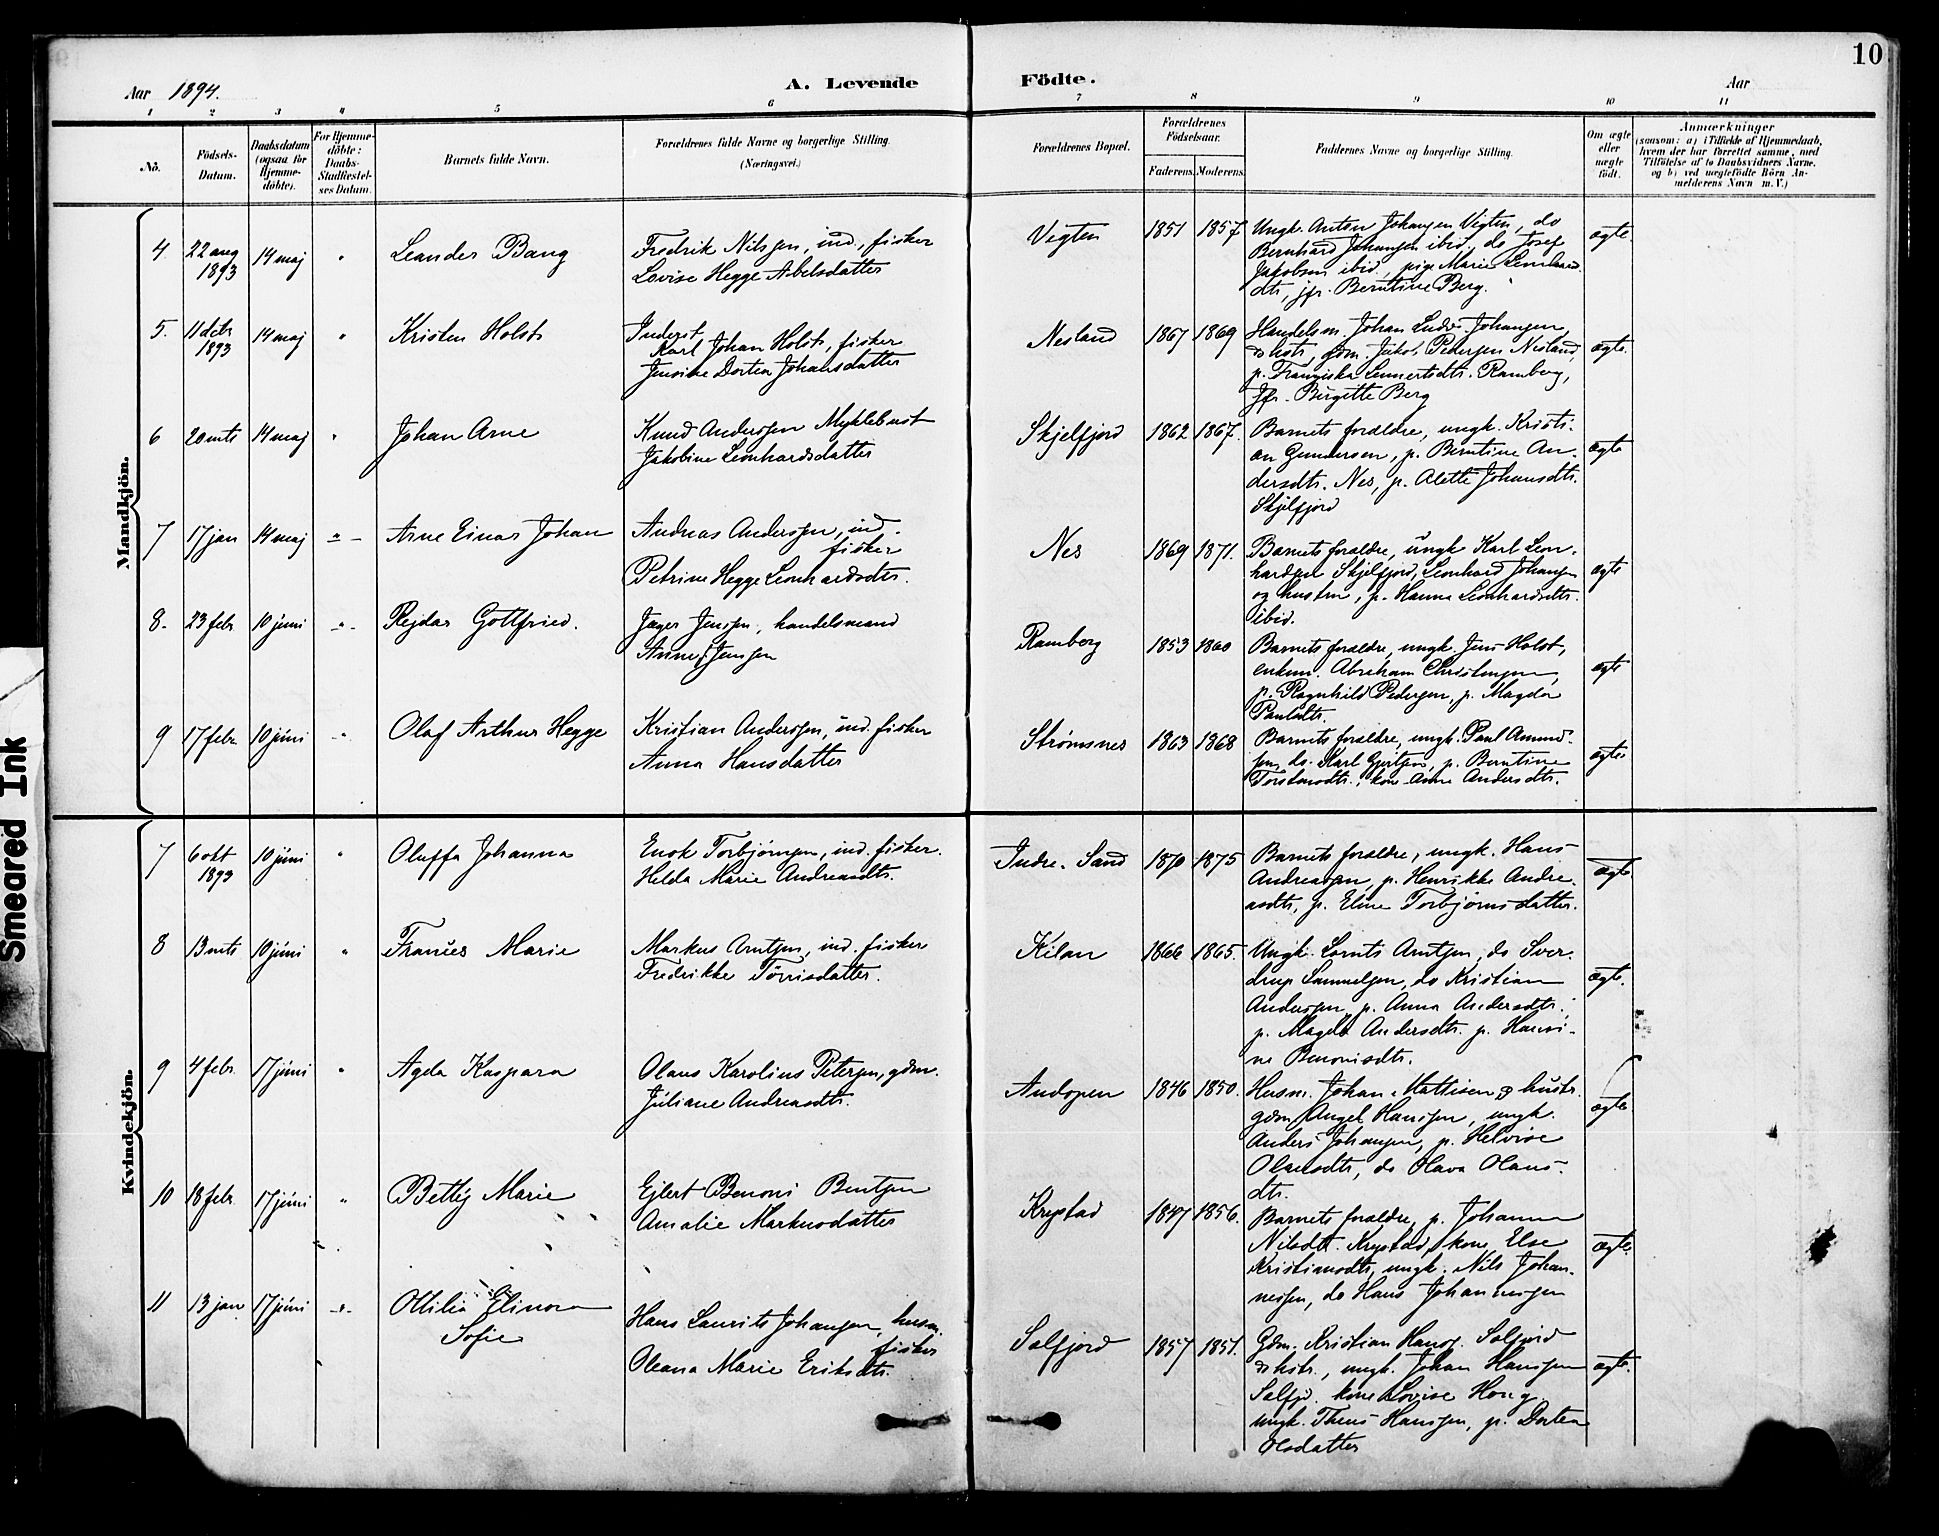 10
Aar 1894.
A. Levende Födte.
Aar
1 2 3 4 5 6 7 8 9 10 11
No.
Födsels-Datum.
Daabsdatum (ogsaa for Hjemme-döbte).
For Hjemme-döbte: Daabs-Stadfæstel-ses Datum.
Barnets fulde Navn.
Forældrenes fulde Navne og borgerlige Stilling.
(Næringsvei.)
Forældrenes Bopæl.
Forældrenes Födselsaar.
Faderens. Moderens.
Faddernes Navne og borgerlige Stilling.
Om ægte eller uægte födt.
Anmærkninger
(saasom: a) i Tilfælde af Hjemmedaab,
hvem der har forrettet samme, med
Tilföielse af to Daabsvidners Navne.
og b) ved uægtefödte Börn An-
melderens Navn m. V.)
Mandkjön.
4 22 aug 1893 14 maj " Leander Bang
Fredrik Nilsen, ind., fisker
Lovise Hegge Abelsdatter
Vegten 1851 1857
Ungk. Anton Johansen Vigten, do
Bernhard Johansen ibid., do Josef
Jakobsen ibid., pige Marie Leonhard
dtr, jfr. Berntine Berg.
ægte
5. 11 dcbr 1893 14 maj " Kristen Holst
Inderst
Karl Johan Holst, fisker
Jensine Dortea Johansdatter
Nesland 1867 1869
Handelsm. Johan Ludv. Johansen,
& hstr, gdm. Jakob Pedersen Nesland,
p. Franziska Lennertsdtr. Ramberg,
Jfr. Birgitte Berg
ægte.
6 20 mts 14 maj " Johan Arne
Knud Andersen Myklebust
Jakobine Leonhardsdatter
Skjelfjord 1862 1867.
Barnets foraldre, ungk. Kristi-
an Gundersen, p. Berntine An-
dersdtr. Nes, p. Alette Johansdtr.
Skjelfjord
ægte
7 17 jan 14 maj -"- Arne Einar Johan
Andreas Andersen, ind.
fisker
Petrine Hegge Leonhardsdtr.
Nes 1869 1871.
Barnets foraldre, ungk Karl Leon-
hardsen Skjelfjord, Leonhard Johansen
og hustru, p. Hanna Leonhardsdtr.
ibid.
ægte
8. 23 febr 10 juni -"- Rejdar Gottfried.
Jager Jensen, handelsmand
Anne Jensen
Ramberg 1853 1860
Barnets foraldre, ungk. Jens Holst,
enkem. Abraham Christensen,
p. Ragnhild Pedersen, p. Magda
Paulsdtr.
ægte
9 17 febr 10 juni " Olaf Arthur Hegge
Kristian Andersen, ind. fisker
Anna Hansdatter
Strømsnes 1863 1868
Barnets foraldre, ungk. Paul Amund-
sen, do. Karl Gjertsen, p. Berntine
Torstensdtr., kone Anne Andersdtr.
ægte
Kvindekjön.
7 6 okt 1893 10 juni " Oluffa Johanna
Enok Torbjørnsen, ind. fisker.
Helda Marie Andreasdtr.
Indre-Sand 1870 1875
Barnets foraldre, ungk. Hans
Andreasen, p. Henrikke Andre-
asdtr, p. Eline Torbjørnsdatter.
ægte.
8 13 mts 10 juni " Frances Marie
Markus Arntsen, ind. fisker
Fredrikke Tørrisdatter.
Kilan 1866 1865.
Ungk. Lornts Arntsen, do Sver-
drup Samuelsen, do Kristian
Andersen, p. Anna Andersdtr.,
p. Magda Andersdtr. p. Hansi-
ne Benonisdtr.
ægte.
9 4 febr. 17 juni " Agda Kaspara
Olaus Karolius Petersen, gdm.
Juliane Andreasdtr.
Andopen 1846 1850.
Husm. Johan Mattisen & hustr.
gdm Angel Hansen, ungk.
Anders Johansen, p. Helvise
Olausdtr, do Olava Olaus-
dtr.
ægte
10 18 febr 17 juni " Betty Marie
Ejlert Benoni Bentsen
Amalie Markusdatter
Krystad 1847 1856.
Barnets foraldre, p. Johanna
Nilsdtr. Krystad, kone Else
Kristiansdtr, ungk. Nils Johan-
nesen, do Hans Johannesen
ægte
11 13 jan 17 juni -"- Ottilia Elinora
Sofie
Hans Laurits Johansen, husm.
fisker
Oleana Marie Eriksdtr.
Solfjord 1857 1851.
Gdm. Kristian Hans. Solfjord
& hstr., ungk. Johan Hansen
Solfjd. kone Lovise Hong
ungk. Theus Hansen, p. Dortea
Olsdatter
ægte.
Smeared Ink